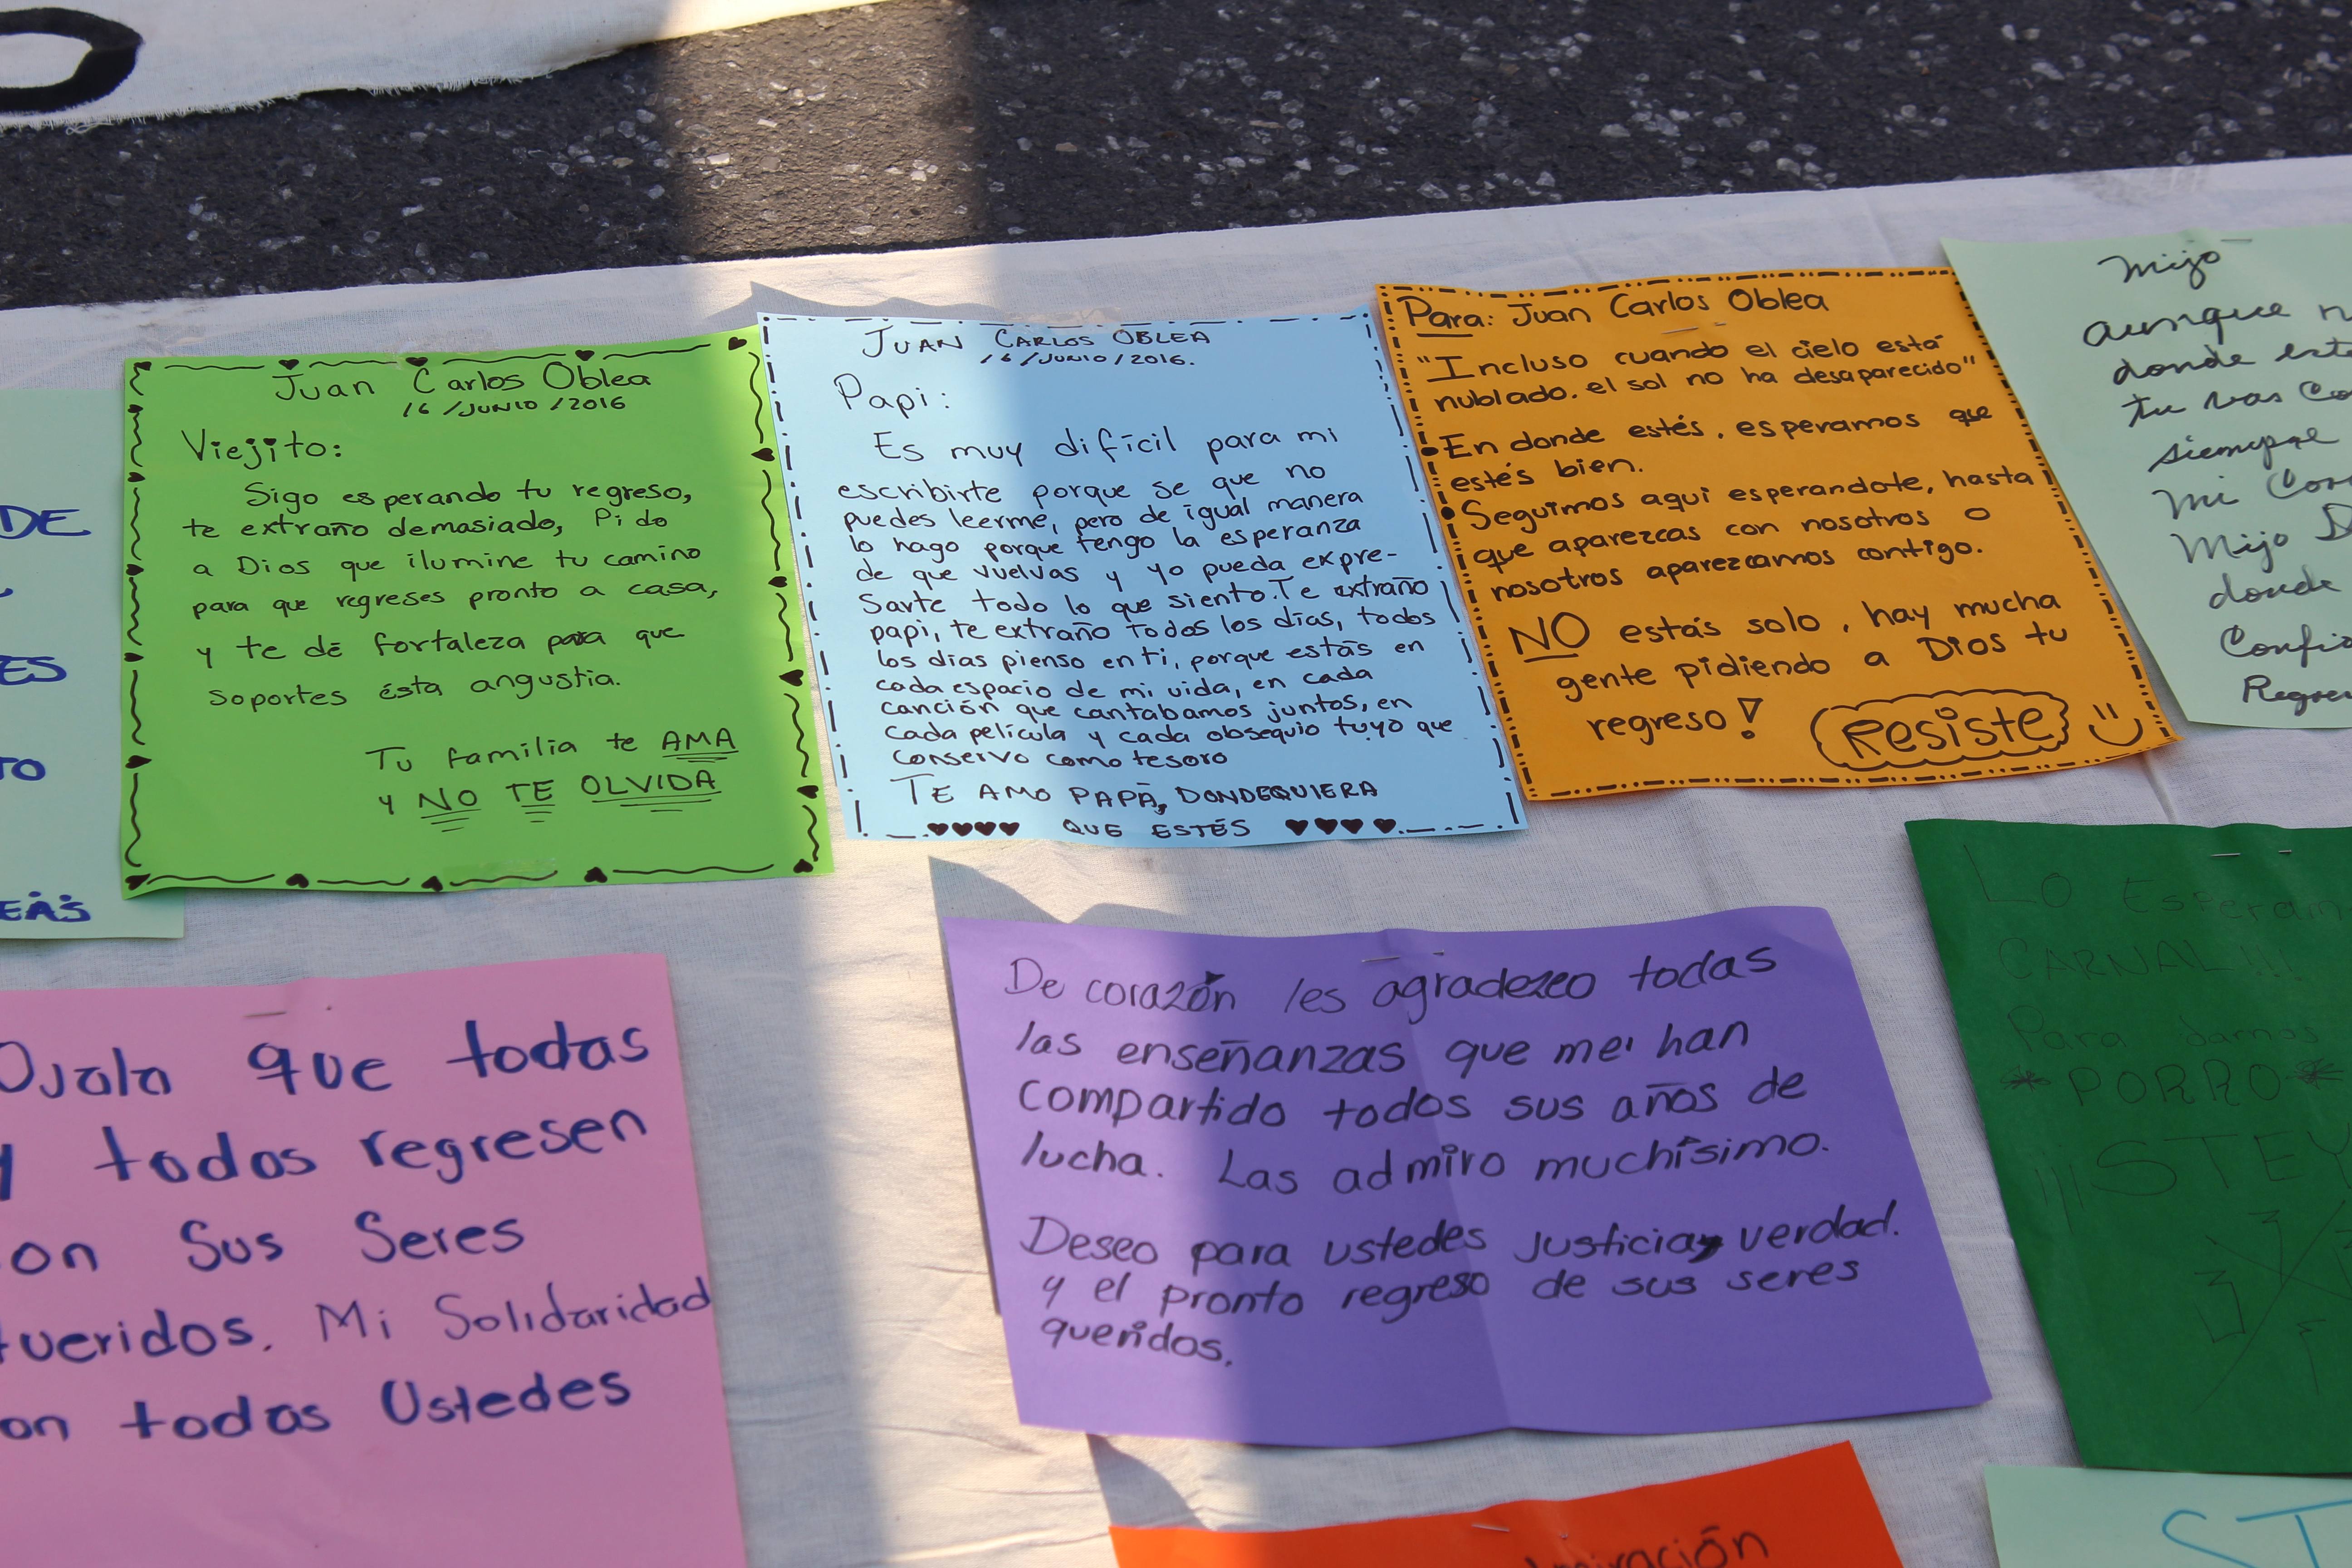 O
DE
ES
TO
Juan Carlos Oblea
16/JUNIO/2016
Viejito:
Sigo esperando tu regreso,
te extraño demasiado, Pido
a Dios que ilumine tu camino
para que regreses pronto a casa,
y te dé fortaleza para que
soportes ésta angustia.
Tu familia te AMA
y NO TE OLVIDA
JUAN CARLOS OBLEA
16/JUNIO/2016.
Papi:
Es muy difícil para mi
escribirte porque se que no
puedes leerme, pero de igual manera
lo hago porque tengo la esperanza
de que vuelvas y yo pueda expre-
sarte todo lo que siento. Te extraño
papi, te extraño todos los días, todos
los días pienso en ti, porque estás en
cada espacio de mi vida, en cada
canción que cantabamos juntos, en
cada película y cada obsequio tuyo que
conservo como tesoro
TE AMO PAPÁ, DONDEQUIERA
QUE ESTÉS
Para: Juan Carlos Oblea
"Incluso cuando el cielo está
nublado. el sol no ha desaparecido"
• En donde estés, esperamos que
estés bien.
• Seguimos aqui esperandote, hasta
que aparezcas con nosotros o
nosotros aparezcamos contigo.
NO estás solo, hay mucha
gente pidiendo a Dios tu
regreso!
Resiste
Mijo
aunque n
donde est
tu vas Co
siempre
Mi Cor
Mijo D
donde
Confi
Regre
Ojala que todas
y todos regresen
on sus seres
queridos. Mi Solidaridad
on todas Ustedes
De corazón les agradezco todas
las enseñanzas que me han
compartido todos sus años de
lucha. Las admiro muchísimo.
Deseo para ustedes justicia, verdad.
y el pronto regreso de sus seres
queridos.
Lo Esperam
CARNAL!!!
Para darnos
*PORRO*
¡¡¡STEY
ST